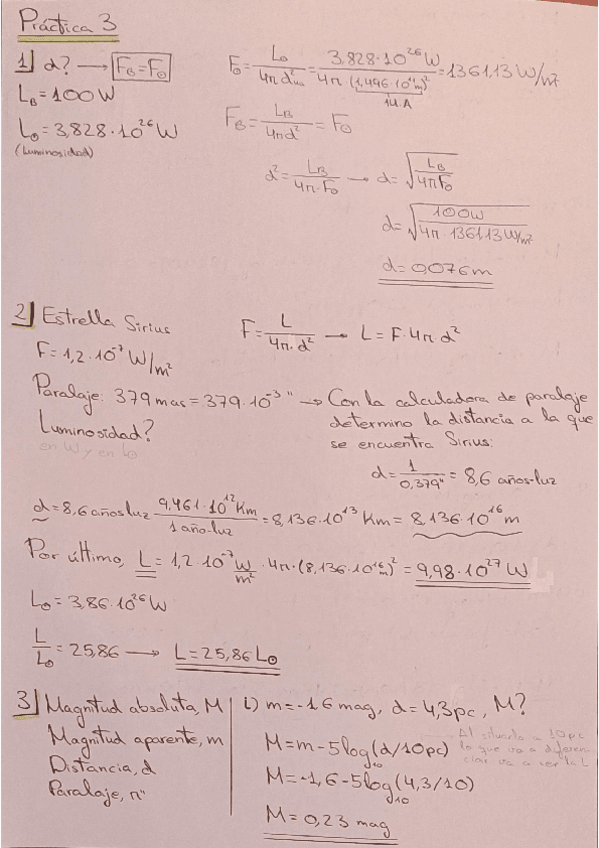 Práctica 3
1] d? → F_B = F_⊙
L_B = 100 W
L_⊙ = 3,828·10^26 W
(Luminosidad)
F_⊙ = L_⊙ / 4π d² = 3,828·10^26 W / 4π·(1,496·10^11 m)² = 1361,13 W/m²
1 U.A
F_B = L_B / 4π d² = F_⊙
d² = L_B / 4π·F_⊙ → d = √(L_B / 4π F_⊙)
d = √(100 W / 4π·1361,13 W/m²)
d = 0,076 m
2] Estrella Sirius
F = 1,2·10^-7 W/m²
F = L / 4π·d² → L = F·4π·d²
Paralaje: 379 mas = 379·10^-3 " → Con la calculadora de paralaje
determino la distancia a la que
se encuentra Sirius:
Luminosidad?
en W y en L_⊙
d = 1 / 0,379" = 8,6 años-luz
d = 8,6 años luz · 9,461·10^12 Km / 1 año-luz = 8,136·10^13 Km = 8,136·10^16 m
Por último, L = 1,2·10^-7 W/m² · 4π·(8,136·10^16 m)² = 9,98·10^27 W
L_⊙ = 3,86·10^26 W
L / L_⊙ = 25,86 → L = 25,86 L_⊙
3] Magnitud absoluta, M
Magnitud aparente, m
Distancia, d
Paralaje, π"
i) m = -1,6 mag, d = 4,3 pc, M?
M = m - 5 log₁₀ (d/10pc)
Al situarla a 10 pc
lo que va a diferen
ciar va a ser la L
M = -1,6 - 5 log₁₀ (4,3/10)
M = 0,23 mag